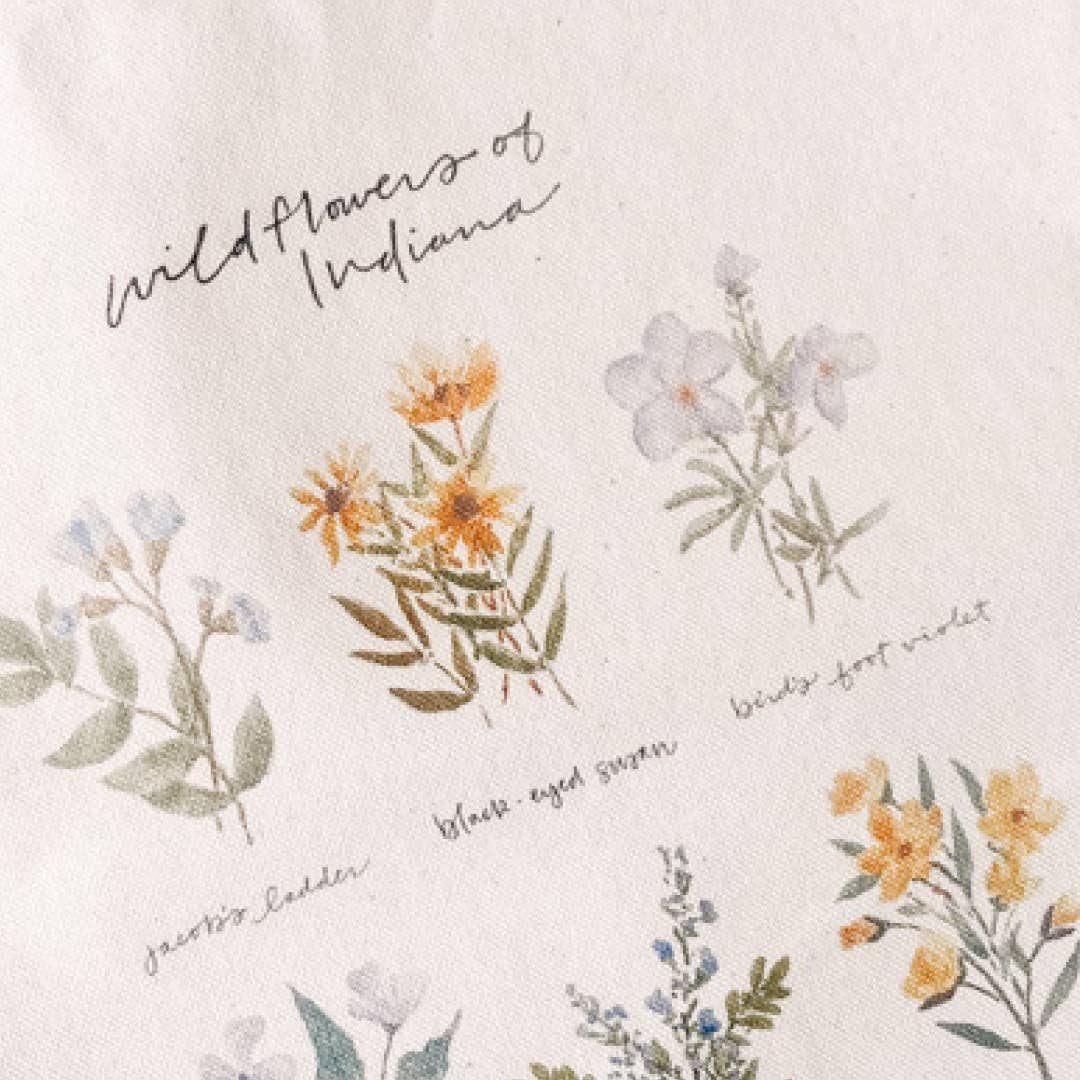 wildflowers of
Indiana
jacob's ladder
black-eyed susan
bird's foot violet